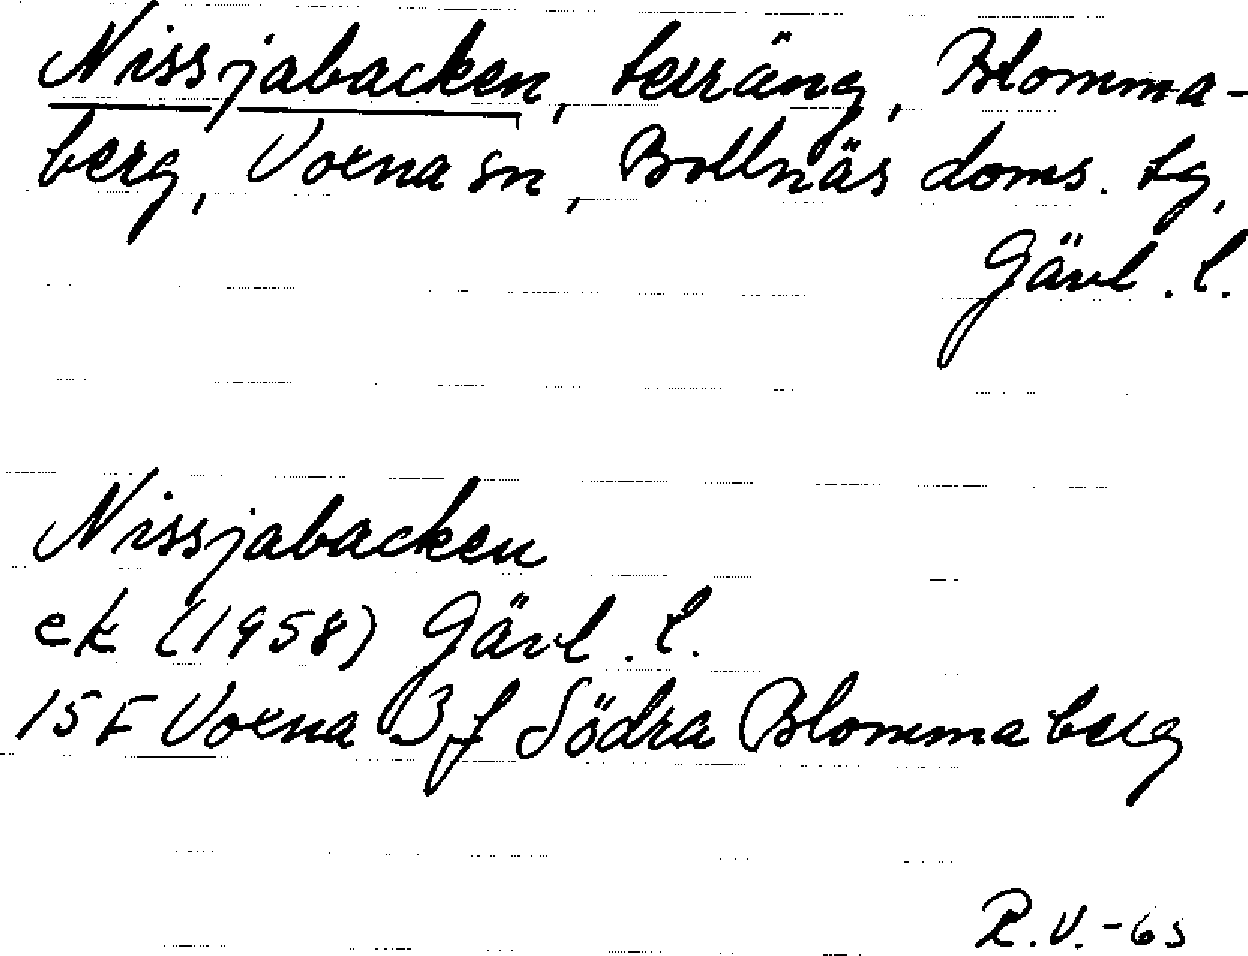 Nissjabacken, terräng, Blomma-
berg, Voxna sn, Bollnäs doms. tg,
Gävl. l.
Nissjabacken
ek (1958) Gävl. l.
15 F Voxna 3 f Södra Blommaberg
R.V.-65